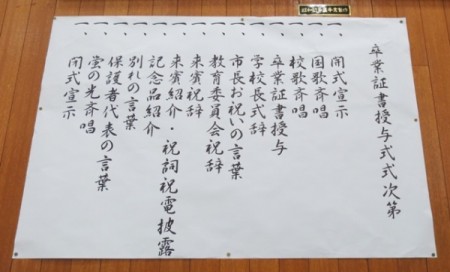 卒業証書授与式式次第
一、開式宣示
一、国歌斉唱
一、校歌斉唱
一、卒業証書授与
一、学校長式辞
一、市長お祝いの言葉
一、教育委員会祝辞
一、来賓祝辞
一、来賓紹介・祝詞祝電披露
一、記念品紹介
一、別れの言葉
一、保護者代表の言葉
一、蛍の光斉唱
一、閉式宣示